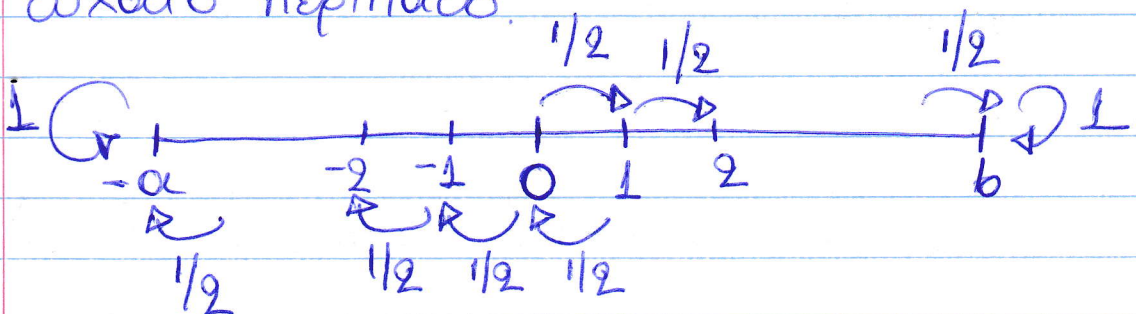 περίπατο.
1/2 1/2 1/2
1 1
-a -2 -1 0 1 2 b
1/2 1/2 1/2 1/2